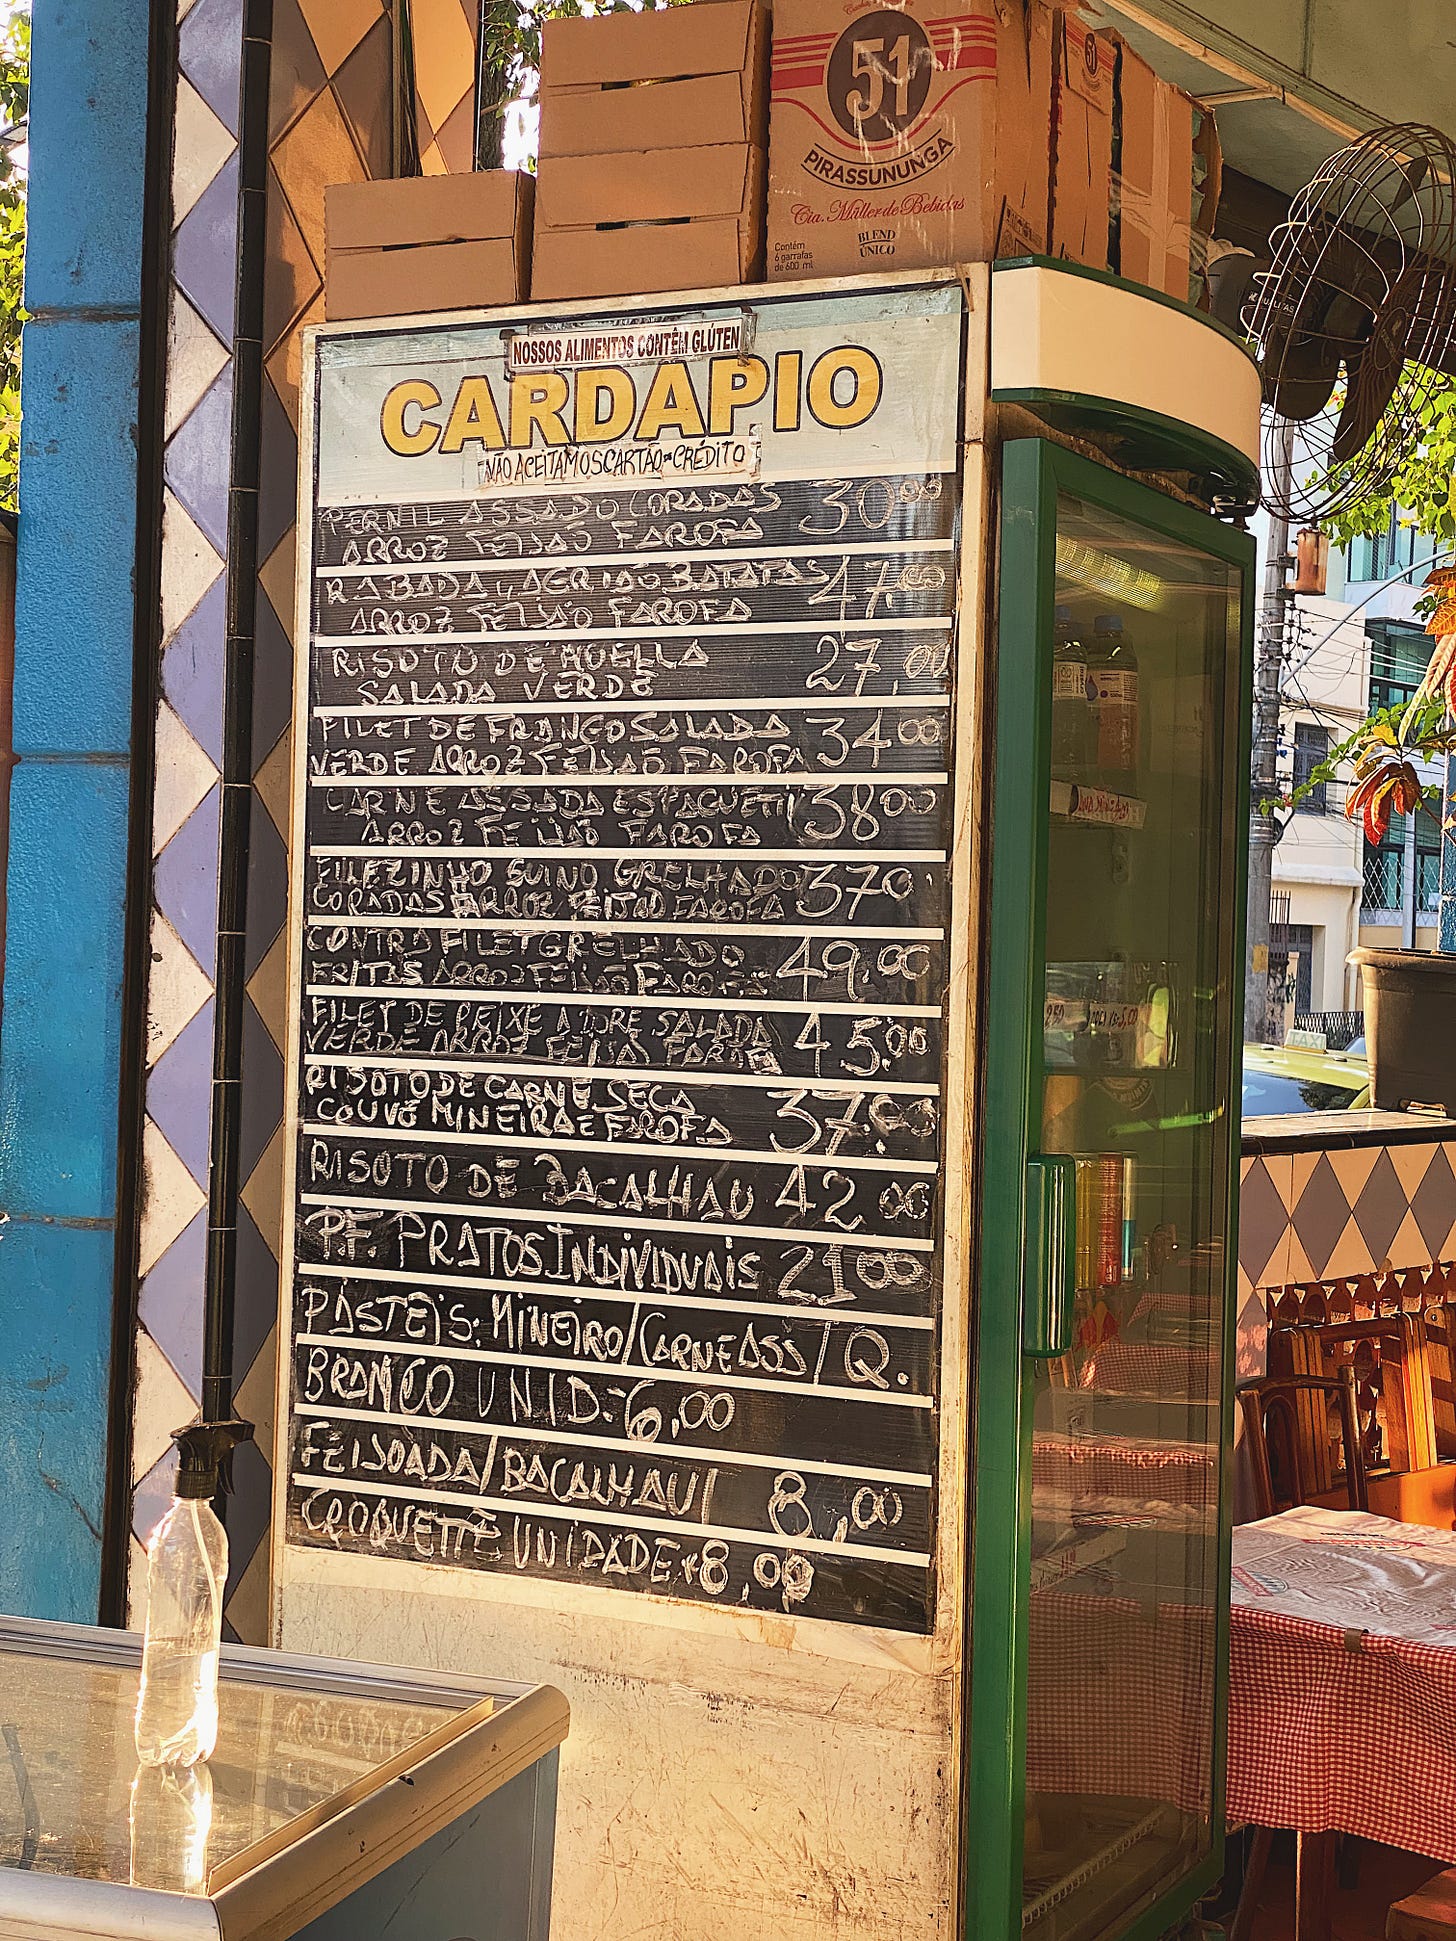 51
PIRASSUNUNGA
Cia. Müller de Bebidas
BLEND
ÚNICO
Contém
6 garrafas
de 600 ml
NOSSOS ALIMENTOS CONTÊM GLÚTEN
CARDAPIO
NÃO ACEITAMOS CARTÃO-CRÉDITO
PERNIL ASSADO CORADAS 30,00
ARROZ FEIJÃO FAROFA
RABADA, AGRIÃO BATATAS 47,00
ARROZ FEIJÃO FAROFA
RISOTO DE MUELLA 27,00
SALADA VERDE
FILET DE FRANGO SALADA 34,00
VERDE ARROZ FEIJÃO FAROFA
CARNE ASSADA ESPAGUETTI 38,00
ARROZ FEIJÃO FAROFA
FILEZINHO SUINO GRELHADO 37,0
CORADAS ARROZ FEIJÃO FAROFA
CONTRA FILET GRELHADO 49,00
FRITAS ARROZ FEIJÃO
FILET DE PEIXE ADORE SALADA 45,00
VERDE ARROZ
RISOTO DE CARNE SECA 37,00
COUVE MINEIRA E FAROFA
RISOTO DE BACALHAU 42,00
P.F. PRATOS INDIVIDUAIS 21,00
PÁSTEIS: MINEIRO/CARNE ASS/Q.
BRANCO UNID-6,00
FEIJOADA/BACALHAU/ 8,00
CROQUETTE UNIDADE 8,00
TAXI